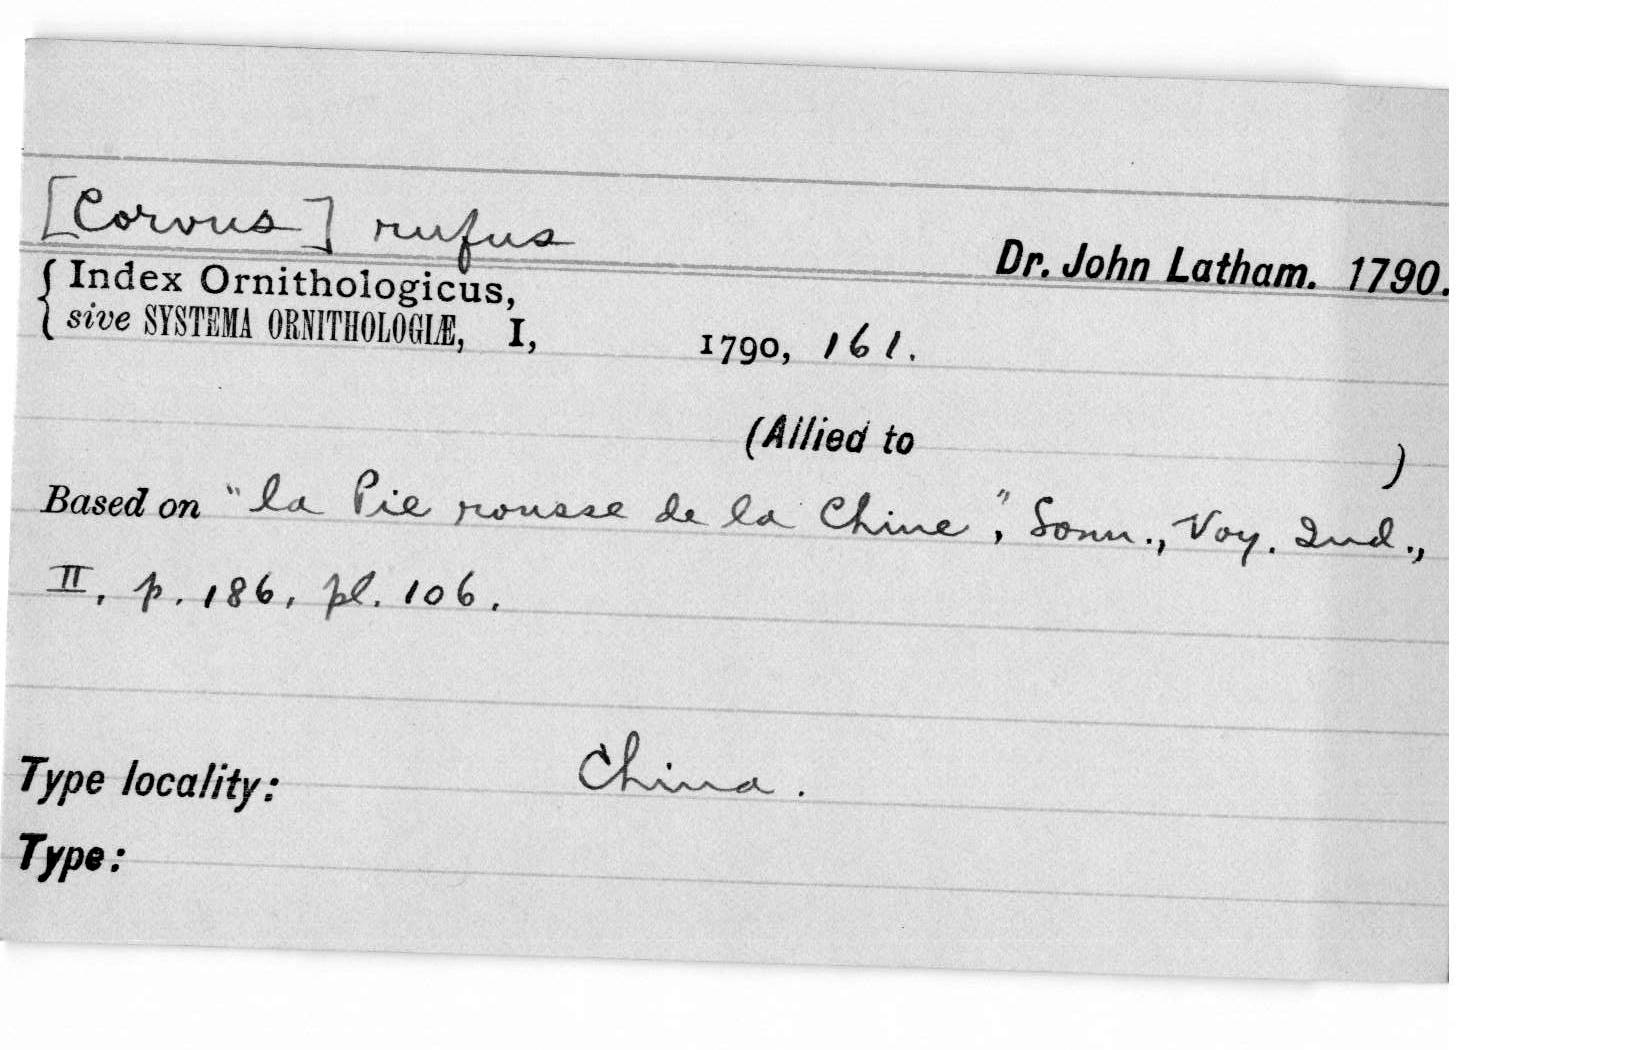 [Corvus] rufus
Dr. John Latham. 1790.
Index Ornithologicus,
sive SYSTEMA ORNITHOLOGIÆ, I, 1790, 161.
(Allied to )
Based on "la Pie rousse de la Chine", Sonn., Voy. Ind.,
II, p. 186, pl. 106.
Type locality: China.
Type: